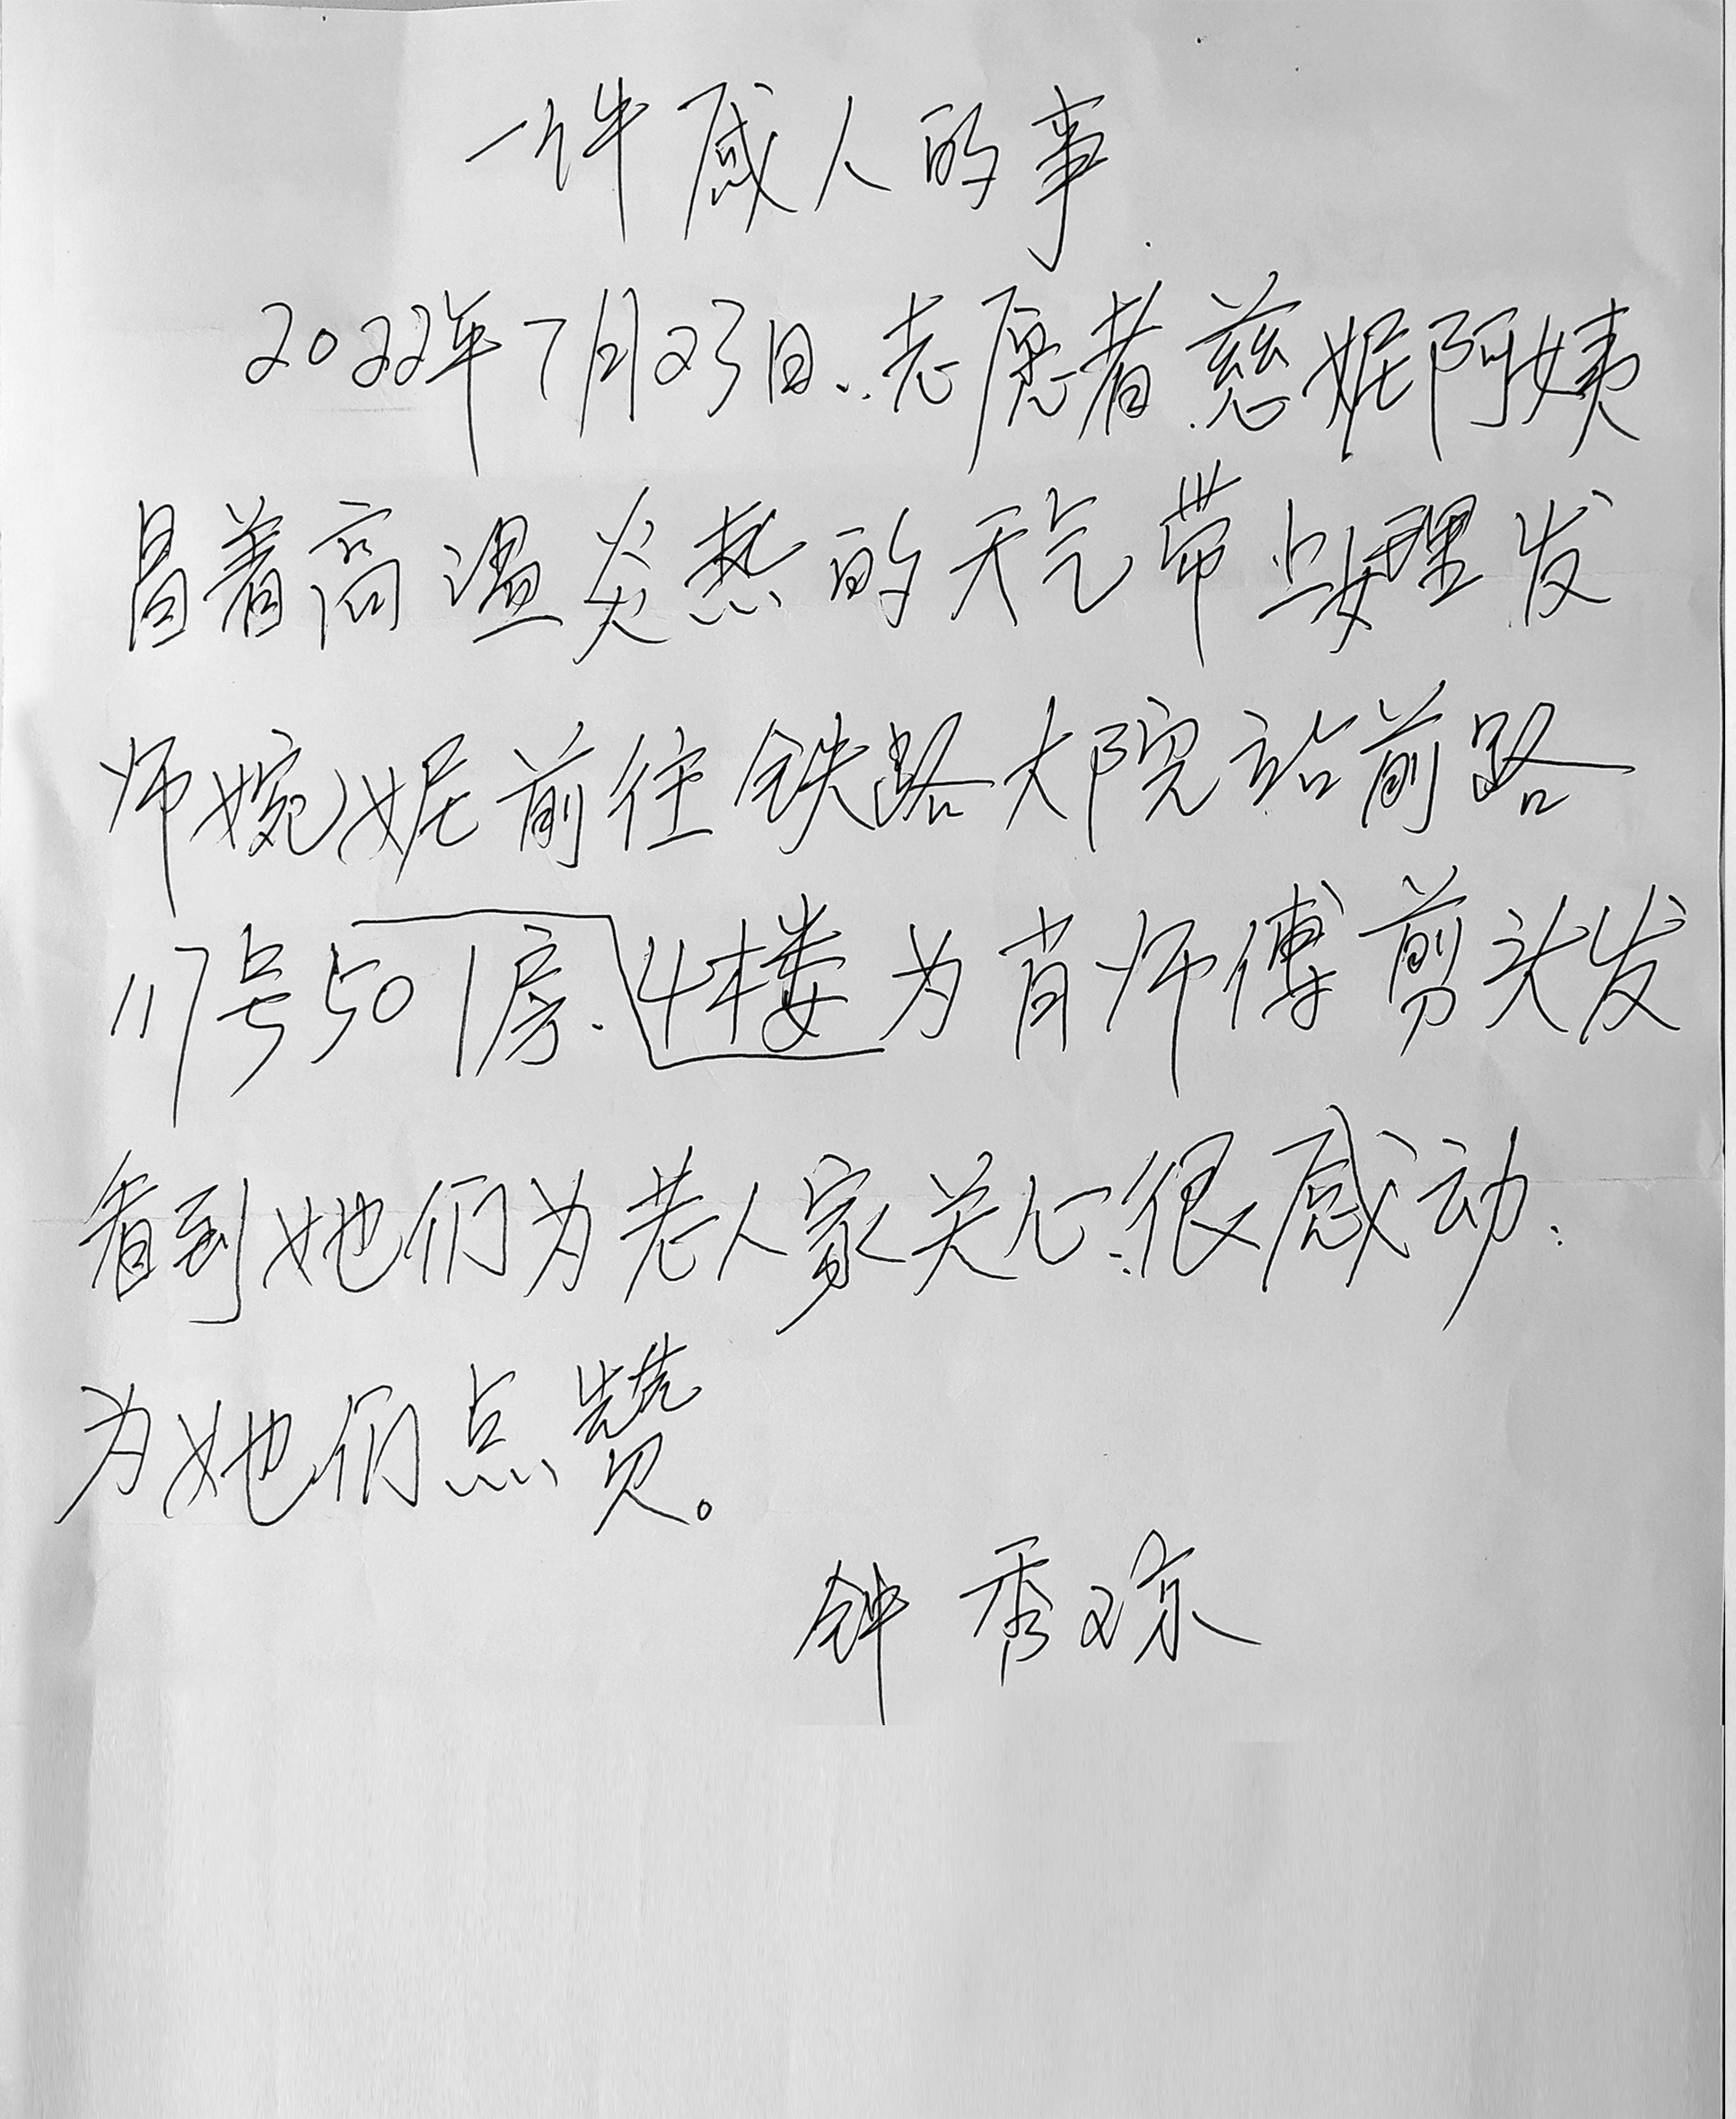 一件感人的事
2022年7月23日.志愿者慈妮阿姨
冒着高温炎热的天气带上理发
师婉妮前往铁路大院站前路
117号501房.4楼为肖师傅剪头发
看到她们为老人家关心.很感动.
为她们点赞。
钟秀琼